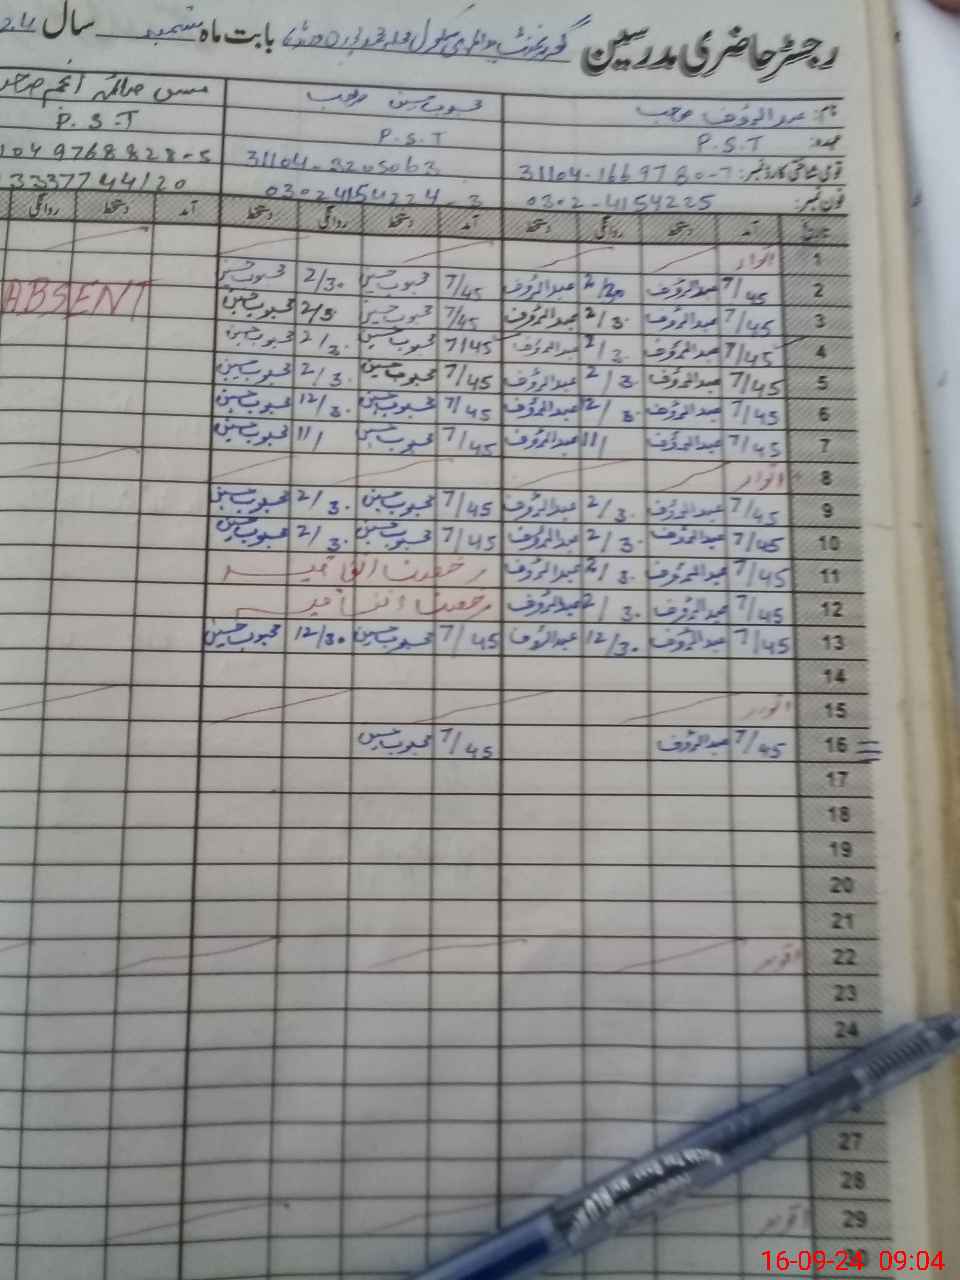 رجسٹر حاضری مدرسین گورنمنٹ پرائمری سکول بابت ماہ ستمبر سال 24
نام: عبدالرؤف صاحب محبوب حسین صاحب مس صائمہ انجم صاحبہ
عہدہ: P.S.T P.S.T P.S.T
قومی شناختی کارڈ نمبر: 31104-1669780-7 31104-3205063 1049768828-5
فون نمبر: 0302-4154225 03024154224-3 3337744120
تاریخ آمد دستخط روانگی دستخط آمد دستخط روانگی دستخط آمد دستخط روانگی
1 اتوار
2 7/45 عبدالرؤف 2/30 عبدالرؤف 7/45 محبوب حسین 2/30 محبوب حسین ABSENT
3 7/45 عبدالرؤف 2/3. عبدالرؤف 7/45 محبوب حسین 2/3 محبوب حسین
4 7/45 عبدالرؤف 2/3. عبدالرؤف 7/45 محبوب حسین 2/3. محبوب حسین
5 7/45 عبدالرؤف 2/3. عبدالرؤف 7/45 محبوب حسین 2/3. محبوب حسین
6 7/45 عبدالرؤف 12/3. عبدالرؤف 7/45 محبوب حسین 12/3. محبوب حسین
7 7/45 عبدالرؤف 11/ عبدالرؤف 7/45 محبوب حسین 11/ محبوب حسین
8 اتوار
9 7/45 عبدالرؤف 2/3. عبدالرؤف 7/45 محبوب حسین 2/3. محبوب حسین
10 7/45 عبدالرؤف 2/3. عبدالرؤف 7/45 محبوب حسین 2/3. محبوب حسین
11 7/45 عبدالرؤف 2/3. عبدالرؤف رخصت اتفاقیہ
12 7/45 عبدالرؤف 2/3. عبدالرؤف رخصت اتفاقیہ
13 7/45 عبدالرؤف 12/3. عبدالرؤف 7/45 محبوب حسین 12/30 محبوب حسین
14
15 اتوار
16 7/45 عبدالرؤف 7/45 محبوب حسین
17
18
19
20
21
22 اتوار
23
24
27
28
29 اتوار
30
16-09-24 09:04